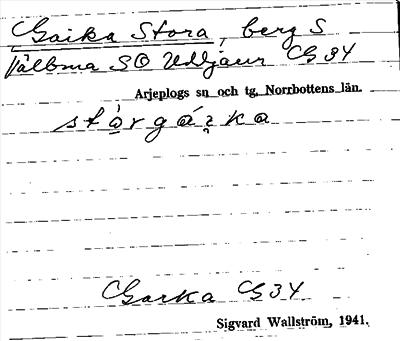 Gaika Stora, berg S
Jålbma SO Udtjaur CG 34
Arjeplogs sn och tg, Norrbottens län.
stọ̀rgáʒka
Garka CG 34
Sigvard Wallström, 1941.